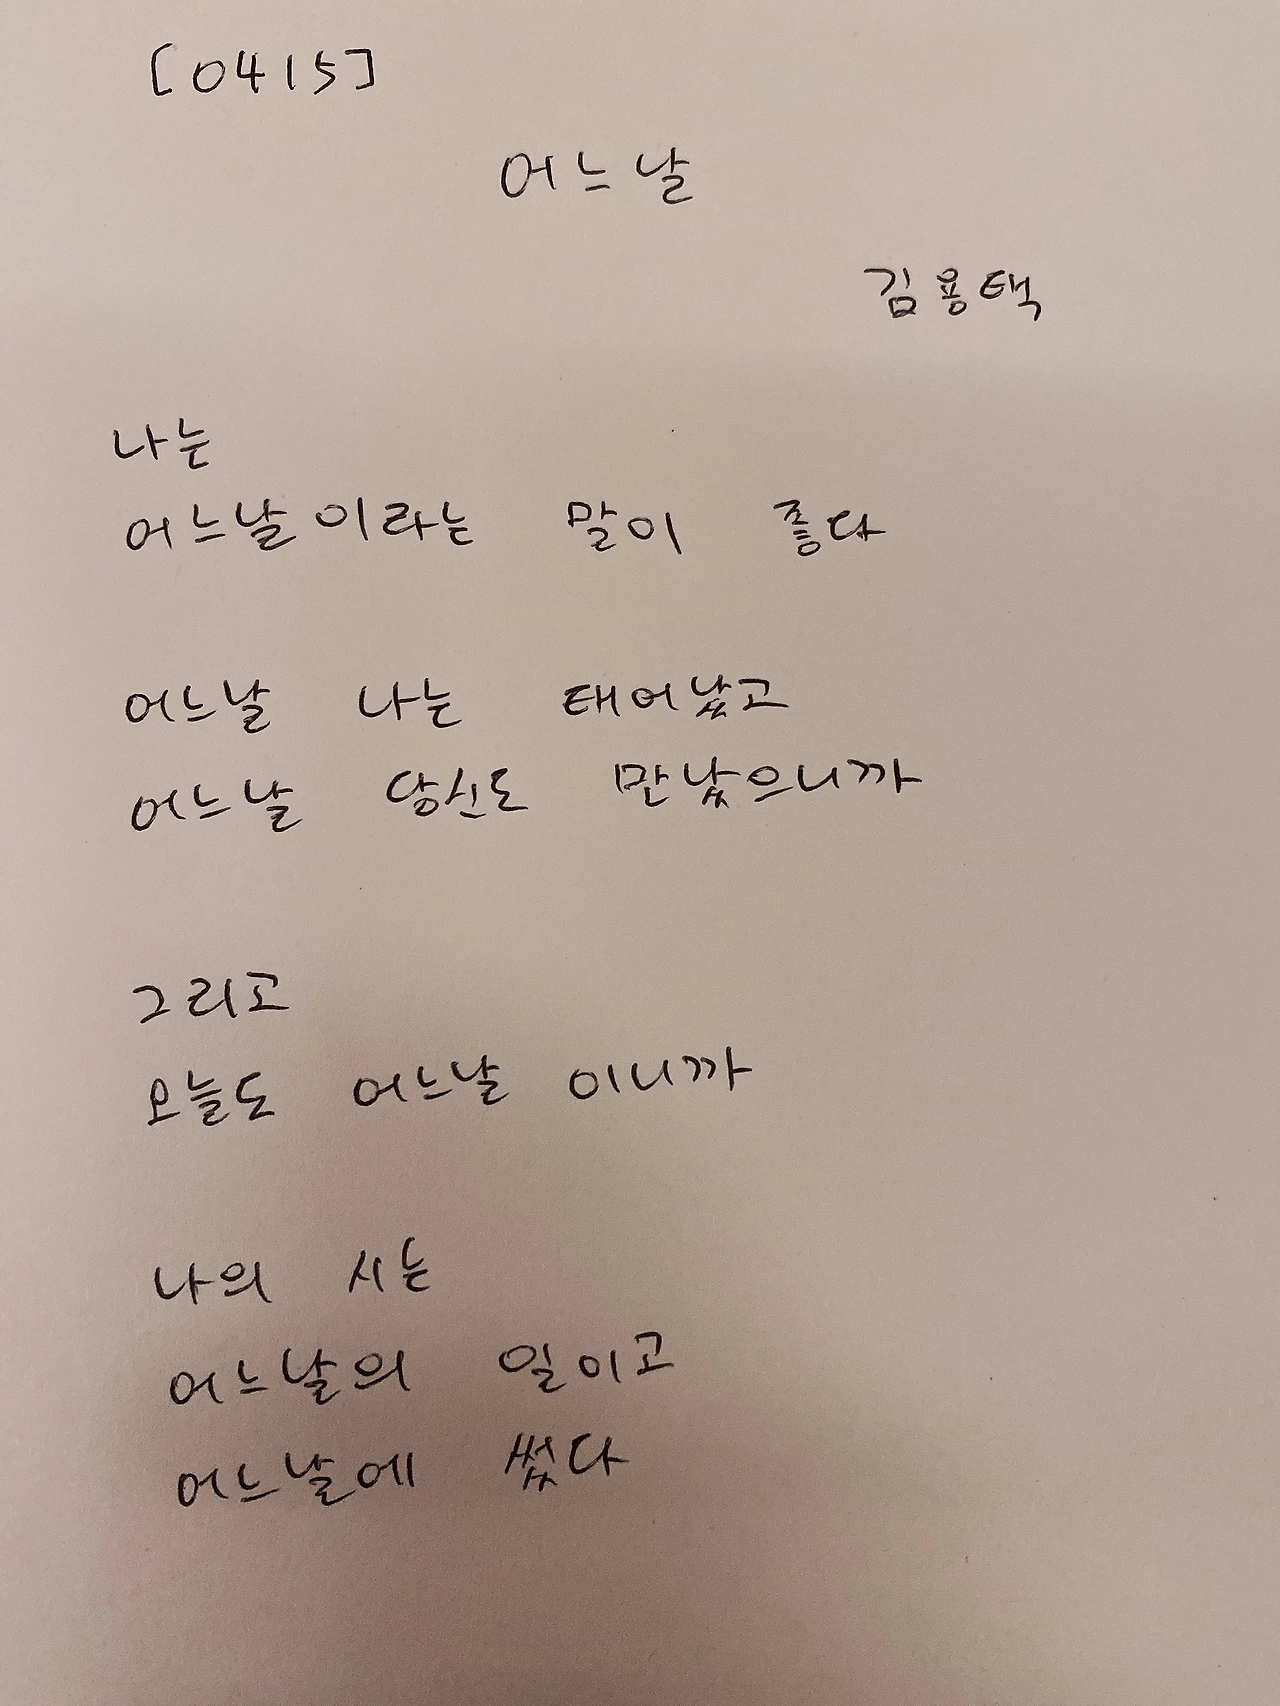 [0415]
어느날
김용택
나는
어느날이라는 말이 좋다
어느날 나는 태어났고
어느날 당신도 만났으니까
그리고
오늘도 어느날 이니까
나의 시는
어느날의 일이고
어느날에 썼다